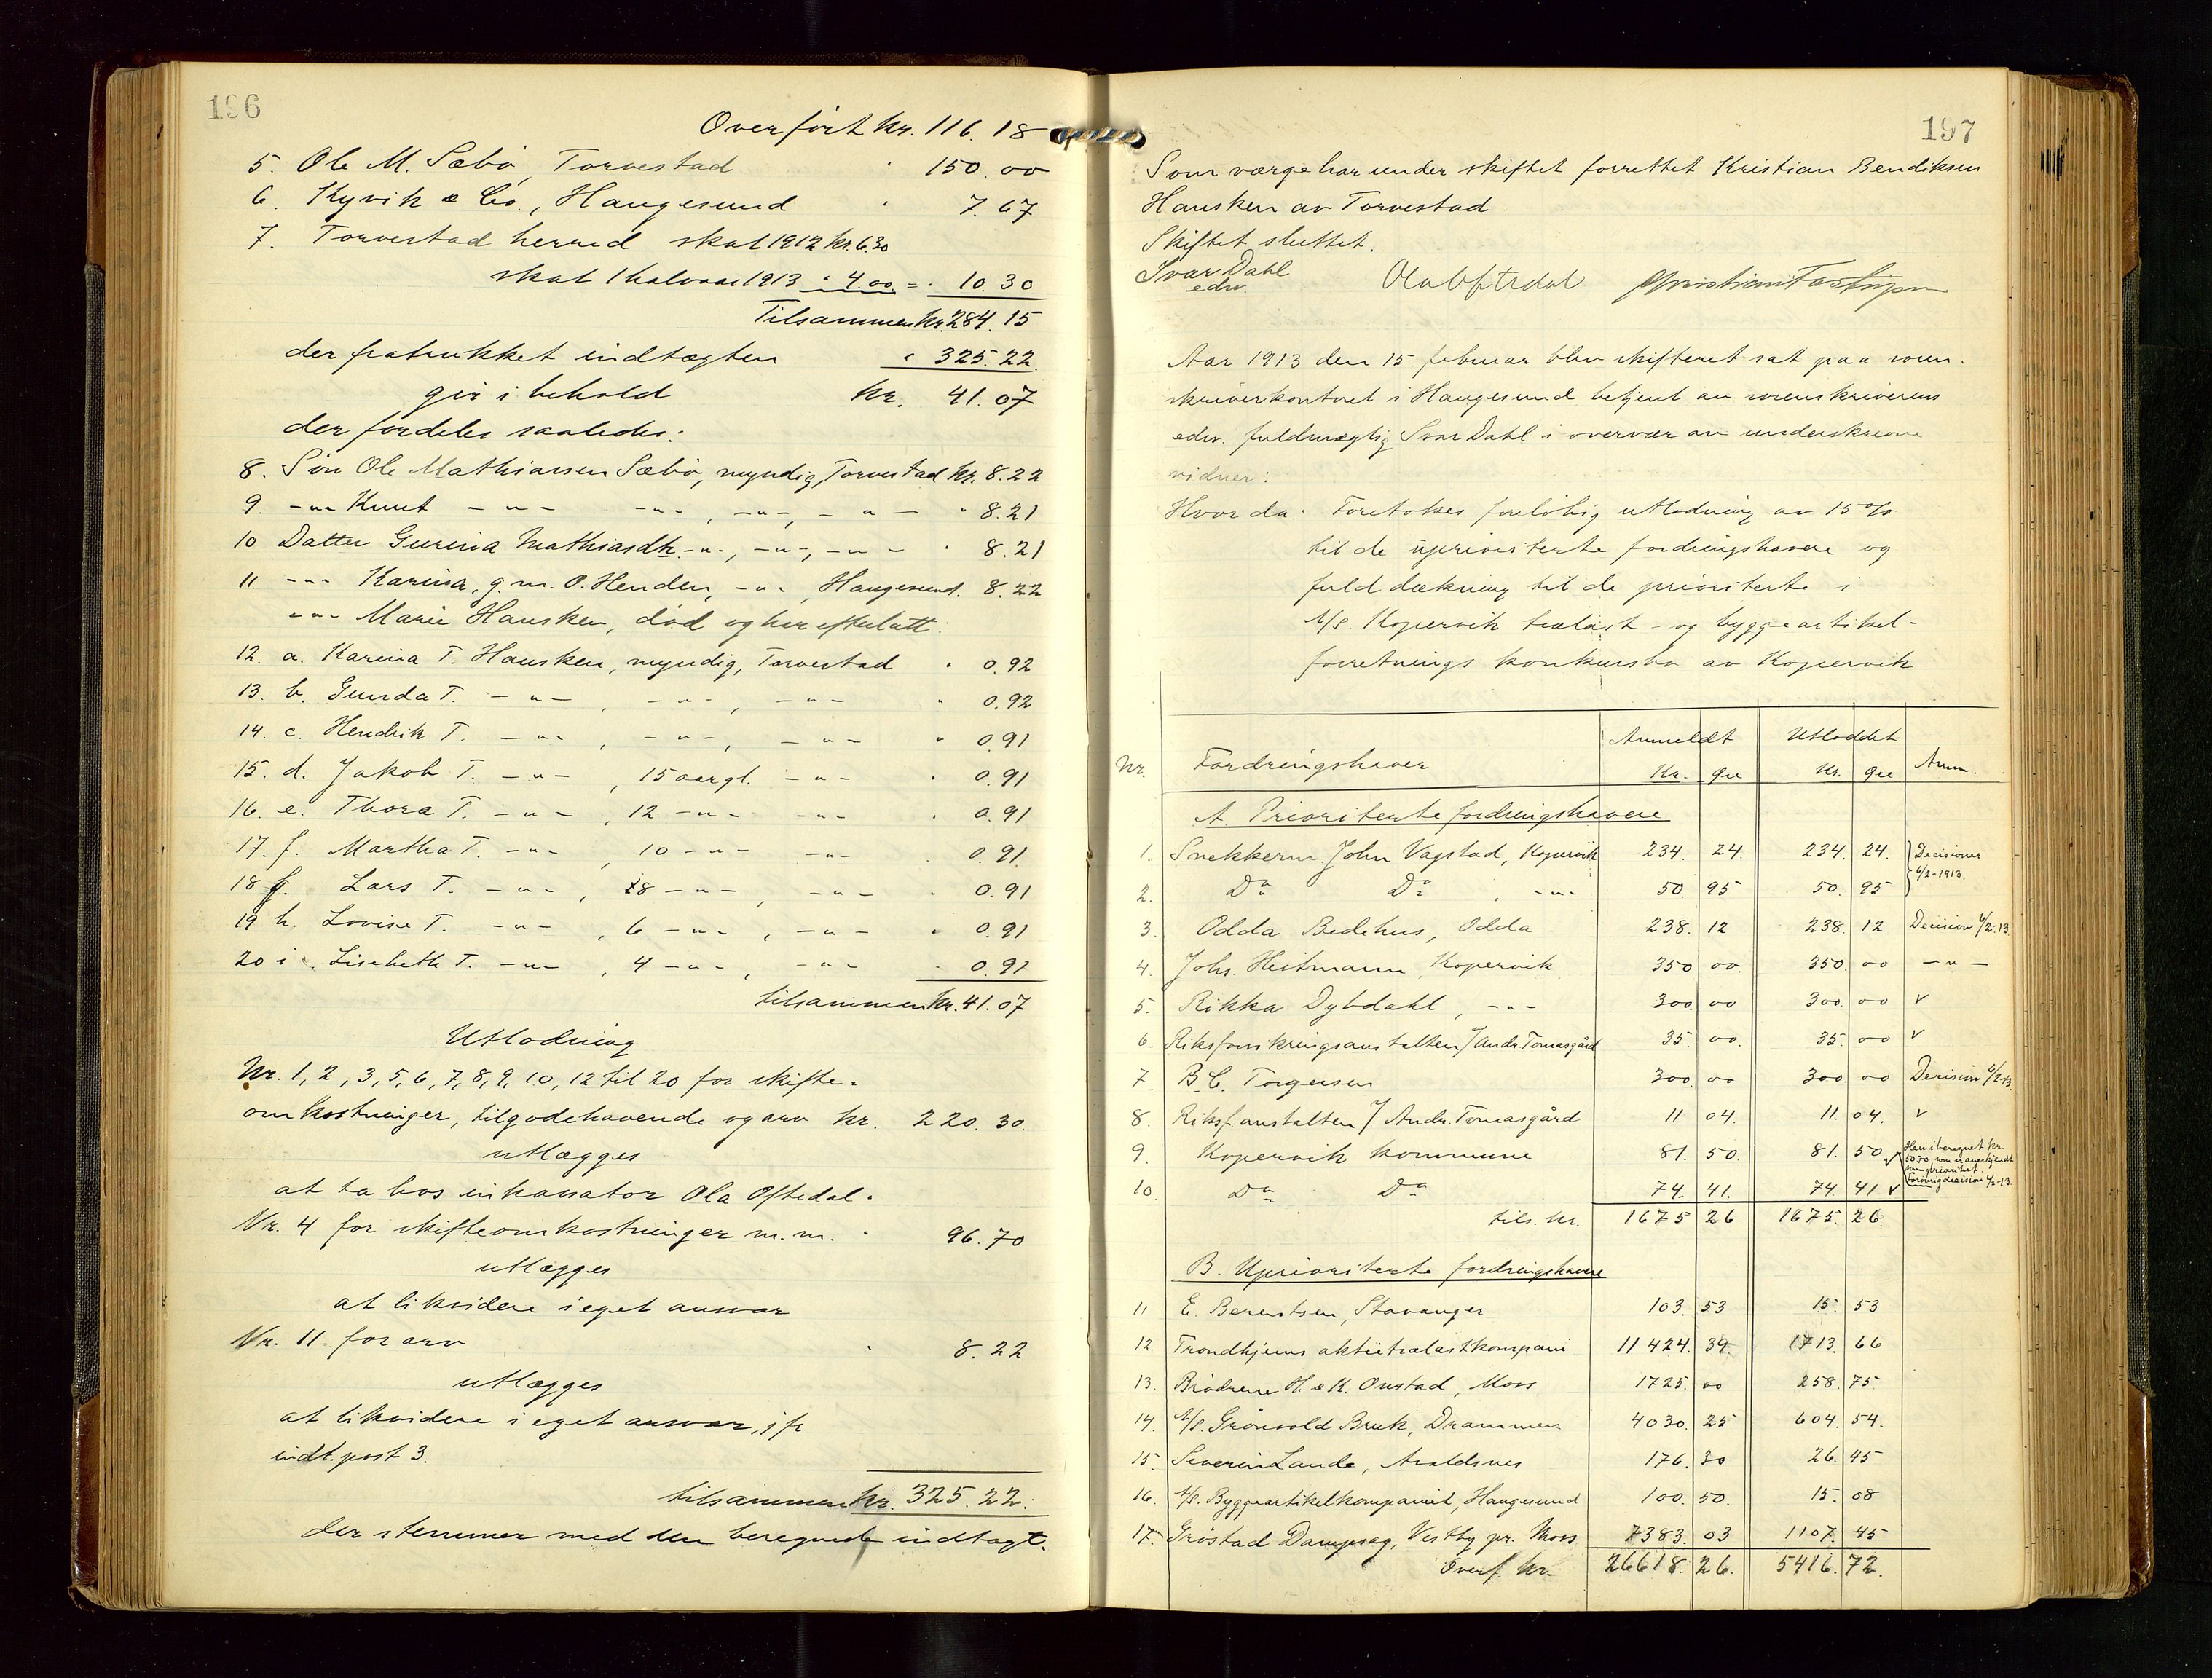 196
Overført Kr. 116.18
5. Ole M. Sæbø, Torvestad " 150.00
6. Kyvik & Co., Haugesund " 7.67
7. Torvestad herred skat 1912 kr. 6.30
skat 1 halvaar 1913 " 4.00 = " 10.30
Tilsammen kr. 284.15
der fratrukket indtægten " 325.22
gir i behold kr. 41.07
der fordeles saaledes:
8. Søn Ole Mathiassen Sæbø, myndig, Torvestad kr. 8.22
9. -"- Knut -"- -"-, -"-, -"- " 8.21
10 Datter Gurina Mathiasdtr. -"-, -"-, -"- " 8.21
11. -"- Karina, g.m. O. Henden, -"-, Haugesund. 8.22
-"- Marie Hausken, død og har efterlatt:
12. a. Karina T. Hausken, myndig, Torvestad " 0.92
13. b. Gunda T. -"-, -"-, -"- " 0.92
14. c. Hendrik T. -"-, -"-, -"- " 0.91
15. d. Jakob T. -"-, 15 aar gl. -"- " 0.91
16. e. Thora T. -"-, 12 -"- -"- " 0.91
17. f. Martha T. -"-, 10 -"- -"- " 0.91
18 g. Lars T. -"-, 8 -"-, -"- " 0.91
19 h. Lovise T. -"-, 6 -"-, -"- " 0.91
20 i. Lisebeth T. -"-, 4 -"-, -"- " 0.91
tilsammen kr. 41.07
Utlodning
Nr. 1, 2, 3, 5, 6, 7, 8, 9, 10, 12 til 20 for skifte-
omkostninger, tilgodehavende og arv kr. 220.30.
utlægges
at ta hos inkassator Ola Oftedal.
Nr. 4 for skifteomkostninger m.m. " 96.70
utlægges
at likvidere i eget ansvar
Nr. 11 for arv " 8.22
utlægges
at likvidere i eget ansvar, jfr
indt. post 3.
tilsammen kr. 325.22.
der stemmer med den beregnede indtægt.
197
Som værge har under skiftet forrettet Kristian Bendiksen
Hausken av Torvestad
Skiftet sluttet.
Ivar Dahl
edsv.
Ola Oftedal
Aar 1913 den 15 februar blev skifteret sat paa soren-
skriverkontoret i Haugesund betjent av sorenskriverens
edsv. fuldmægtig Ivar Dahl i overvær av underskrevne
vidner:
Hvorda: Foretokes foreløbig utlodning av 15 %
til de uprioriterte fordringshavere og
fuld dækning til de prioriterte i
A/S. Kopervik trælast- og byggeartikel-
forretnings konkursbo av Kopervik
Nr. Fordringshaver Anmeldt Utloddet Anm.
Kr. Øre Kr. Øre
A. Prioriterte fordringshavere
1. Snekkerm. John Vagstad, Kopervik 234. 24. 234. 24. Decisioner
6/2-1913.
2. Do Do, -"- 50. 95 50. 95
3. Odda Bedehus, Odda 238. 12 238. 12 Decision 6/2-13
4. Johs. Heitmann Kopervik 350 00. 350. 00 -"-
5. Rikka Dybdahl, -"- 300. 00 300. 00 v
6. Riksforsikringsanstalten / Andr. Tomasgård 35. 00. 35. 00 v
7. B. C. Torgersen 300. 00 300. 00 Decision 6/2-13.
8. Riksf.anstalten / Andr. Tomasgård 11. 04. 11. 04. v
9. Kopervik kommune 81. 50. 81. 50 v
Heri beregnet kr.
50.70 som er anerkjendt
som prioritet.
10. Do Do 74. 41. 74. 41 v
tils. kr. 1675 26 1675. 26.
B. Uprioriterte fordringshavere
11 E. Berentsen, Stavanger 103. 53 15. 53
12. Trondhjems aktietrælastkompani 11424. 39. 1713. 66
13. Brødrene H. & K. Onstad, Moss 1725. 00 258. 75
14. A/S. Grönvold Bruk, Drammen 4030. 25 604. 54.
15. Severin Lande, Avaldsnes 176. 30 26. 45
16. A/S. Byggeartikelkompaniet, Haugesund 100. 50. 15. 08
17. Grøstad Dampsag, Vestby pr. Moss 7383. 03 1107. 45
Overf. kr. 26618. 26. 5416. 72.